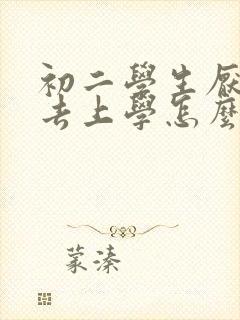 初二學生厭
去上學怎麼
蒙溱